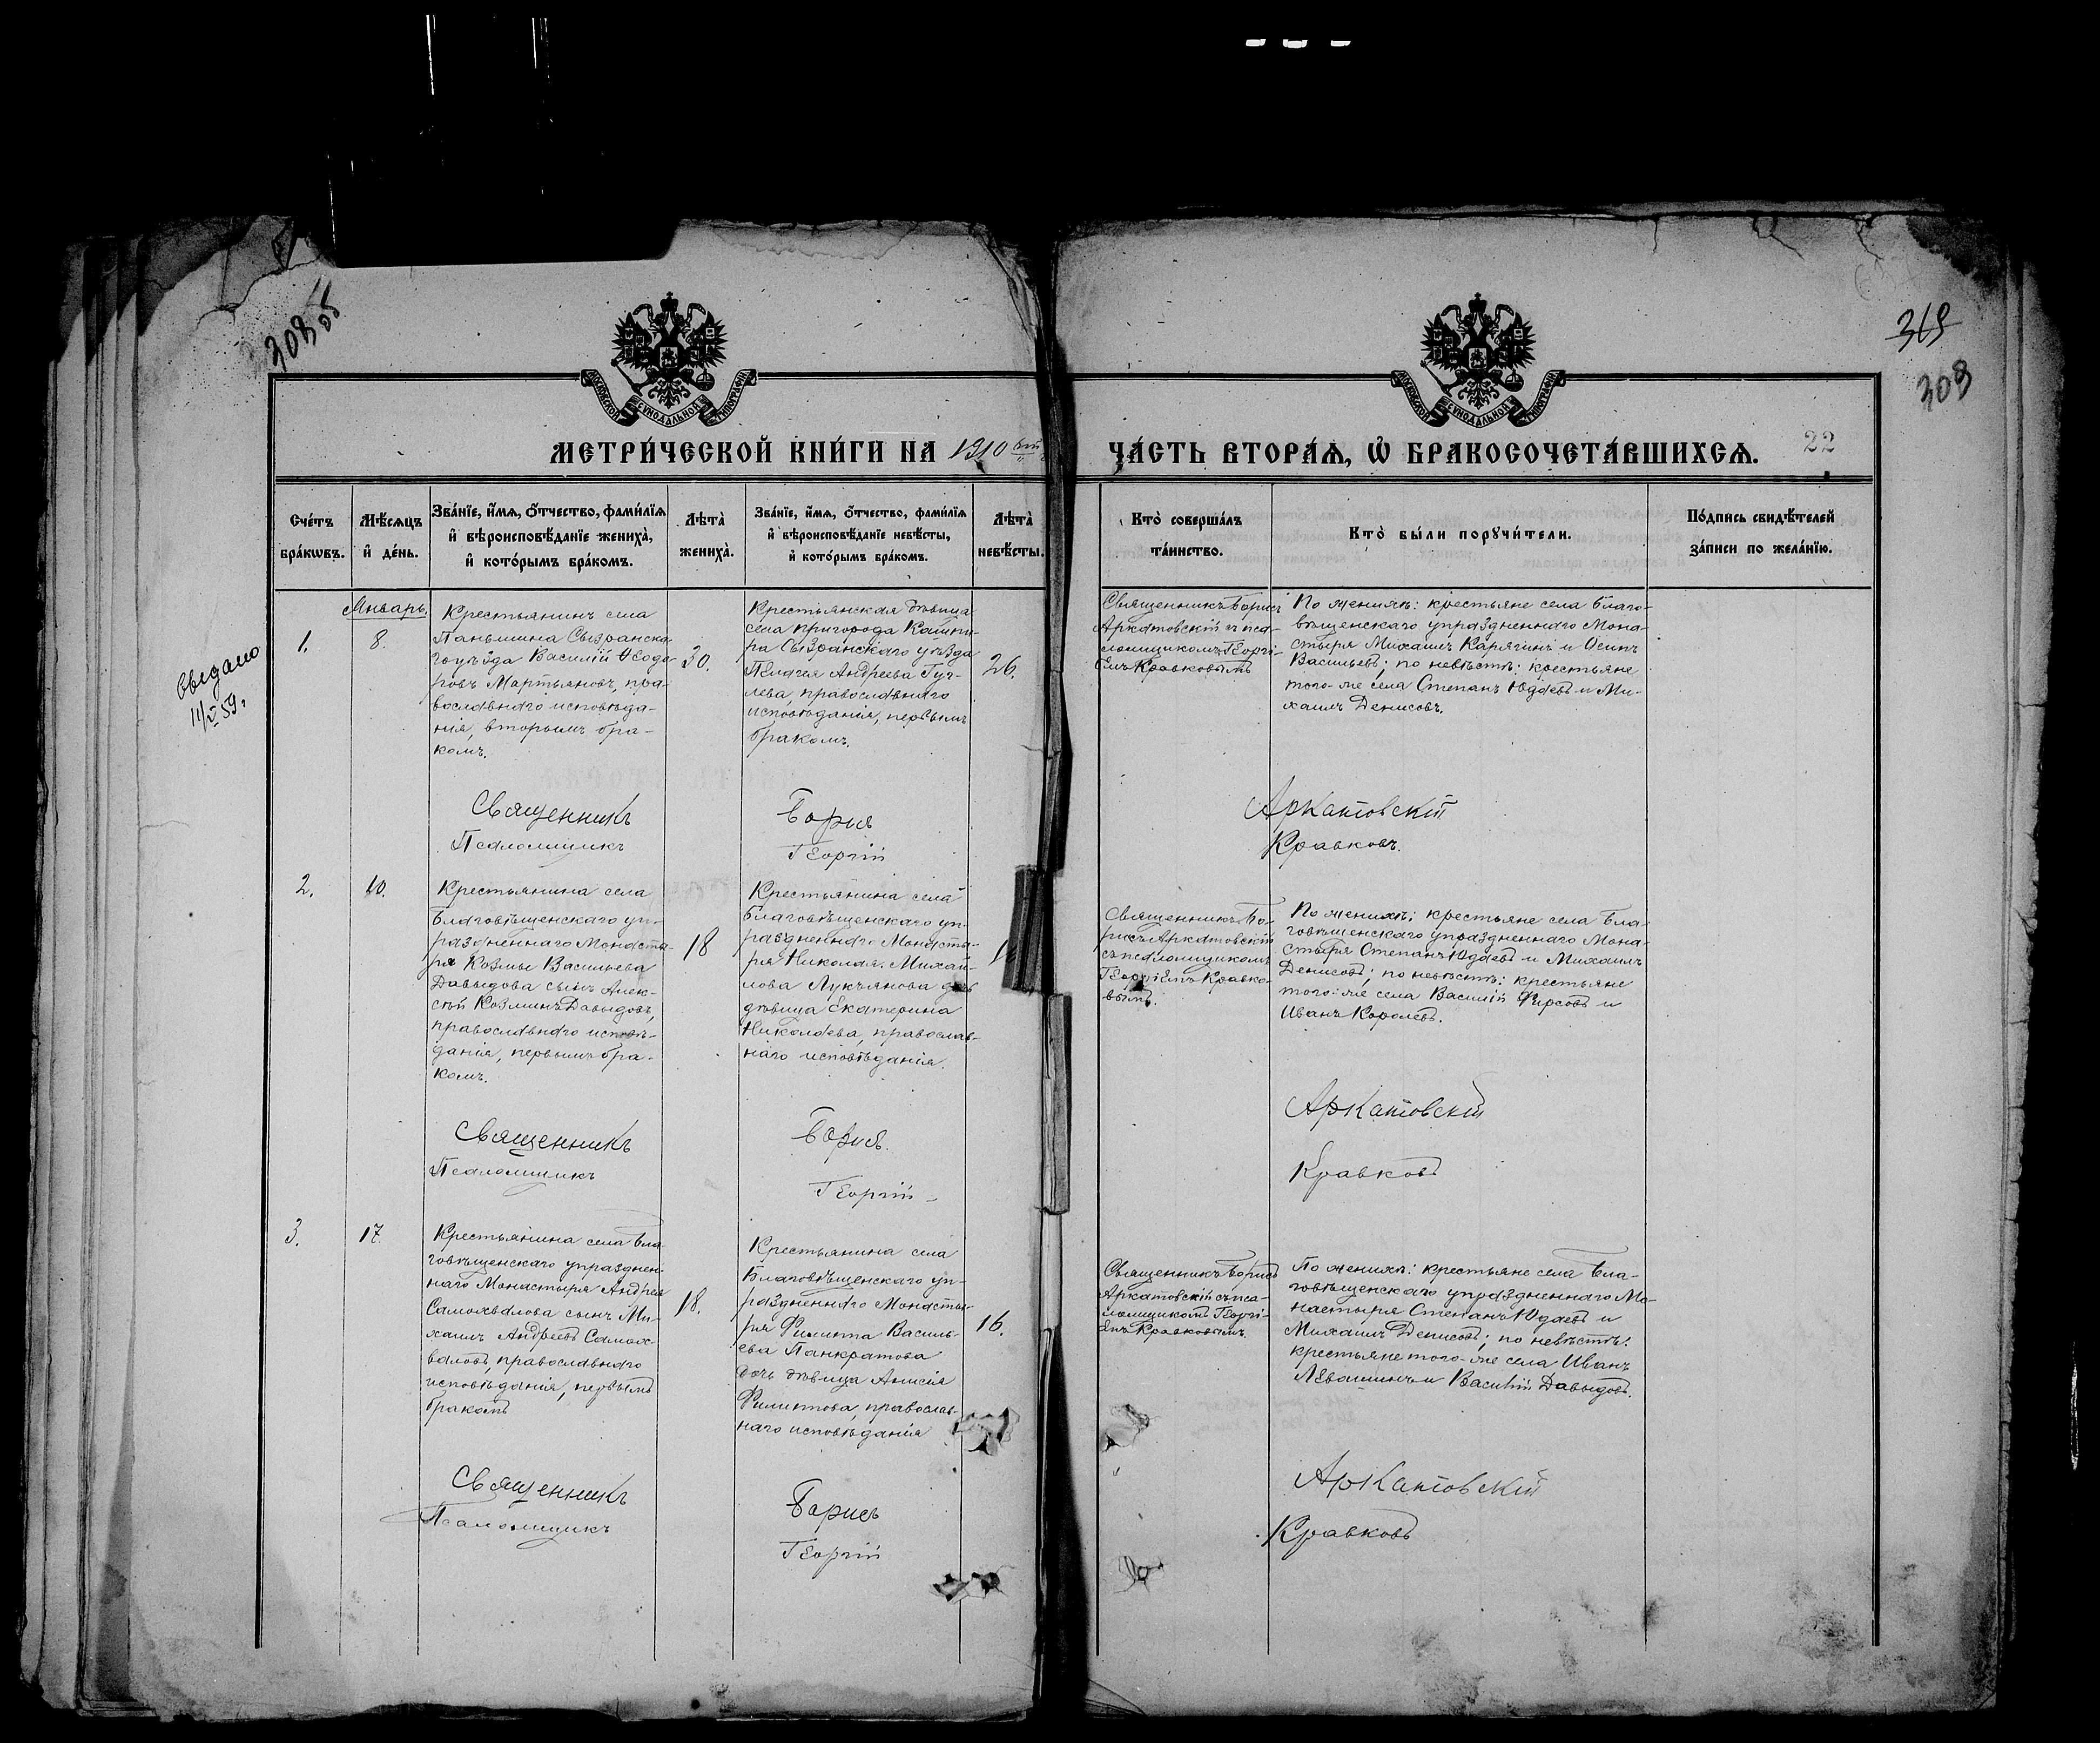 308 об
319
309
МОСКОВСКОЙ СѴНОДАЛЬНОЙ ТИПОГРАФІИ
МОСКОВСКОЙ СѴНОДАЛЬНОЙ ТИПОГРАФІИ
МЕТРИ́ЧЕСКОЙ КНИ́ГИ НА 1910 ЧА́СТЬ ВТОРА́Ѧ, Ѽ БРАКОСОЧЕТА́ВШИХСѦ. 22
Сче́тъ бра́кѡвъ.
Мѣ́сѧцъ и҆ де́нь.
Зва́нїе, и҆́мѧ, ѻ҆́тчество, фами́лїѧ и҆ вѣроисповѣ́данїе жениха̀, и҆ кото́рымъ бра́комъ.
Лѣта̀ жениха̀.
Зва́нїе, и҆́мѧ, ѻ҆́тчество, фами́лїѧ и҆ вѣроисповѣ́данїе невѣ́сты, и҆ кото́рымъ бра́комъ.
Лѣта̀ невѣ́сты.
Кто̀ соверша́лъ та́инство.
Кто̀ бы́ли порꙋчи́тели.
По́дпись свидѣ́телей за́писи по жела́нїю.
Выдано
11/V 59.
Январь.
1.
8.
Крестьянинъ села
Паньшина Сызранска-
го уѣзда Василій Ѳеодо-
ровъ Мартьяновъ, пра-
вославнаго исповѣда-
нія, вторымъ бра-
комъ.
30.
Крестьянская дѣвица
села пригорода Кашпи-
ра Сызранскаго уѣзда
Пелагея Андреева Гуч-
лева, православнаго
исповѣданія, первымъ
бракомъ.
26.
Священникъ Борисъ
Аркатовскій съ пса-
ломщикомъ Георгі-
емъ Кравковымъ
По женихѣ: крестьяне села Благо-
вѣщенскаго упраздненнаго Мона-
стыря Михаилъ Карягинъ и Осипъ
Васильевъ; по невѣстѣ: крестьяне
того-же села Степанъ Юдаевъ и Ми-
хаилъ Денисовъ.
Священникъ Борисъ Аркатовскій
Псаломщикъ Георгій Кравковъ.
2.
10.
Крестьянина села
Благовѣщенскаго уп-
раздненнаго Монасты-
ря Козмы Васильева
Давыдова сынъ Алек-
сѣй Козминъ Давыдовъ,
православнаго исповѣ-
данія, первымъ бра-
комъ.
18
Крестьянина села
Благовѣщенскаго уп-
раздненнаго Монасты-
ря Николая Михай-
лова Лукъянова дочь
дѣвица Екатерина
Николаева, православ-
наго исповѣданія.
Священникъ Бо-
рисъ Аркатовскій
съ псаломщикомъ
Георгіемъ Кравко-
вымъ.
По женихѣ: крестьяне села Бла-
говѣщенскаго упраздненнаго Мона-
стыря Степанъ Юдаевъ и Михаилъ
Денисовъ; по невѣстѣ: крестьяне
того-же села Василій Фирсовъ и
Иванъ Королевъ.
Священникъ Борисъ. Аркатовскій
Псаломщикъ Георгій Кравковъ
3.
17.
Крестьянина села Бла-
говѣщенскаго упразднен-
наго Монастыря Андрея
Самохвалова сынъ Ми-
хаилъ Андреевъ Самох-
валовъ, православнаго
исповѣданія, первымъ
бракомъ
18.
Крестьянина села
Благовѣщенскаго уп-
раздненнаго Монасты-
ря Филиппа Василь-
ева Панкратова
дочь дѣвица Анисія
Филиппова, православ-
наго исповѣданія
16.
Священникъ Борисъ
Аркатовскій съ пса-
ломщикомъ Георгі-
емъ Кравковымъ.
По женихѣ: крестьяне села Бла-
говѣщенскаго упраздненнаго Мо-
настыря Степанъ Юдаевъ и
Михаилъ Денисовъ; по невѣстѣ:
крестьяне того-же села Иванъ
Левашинъ и Василій Давыдовъ.
Священникъ Борисъ Аркатовскій
Псаломщикъ Георгій Кравковъ